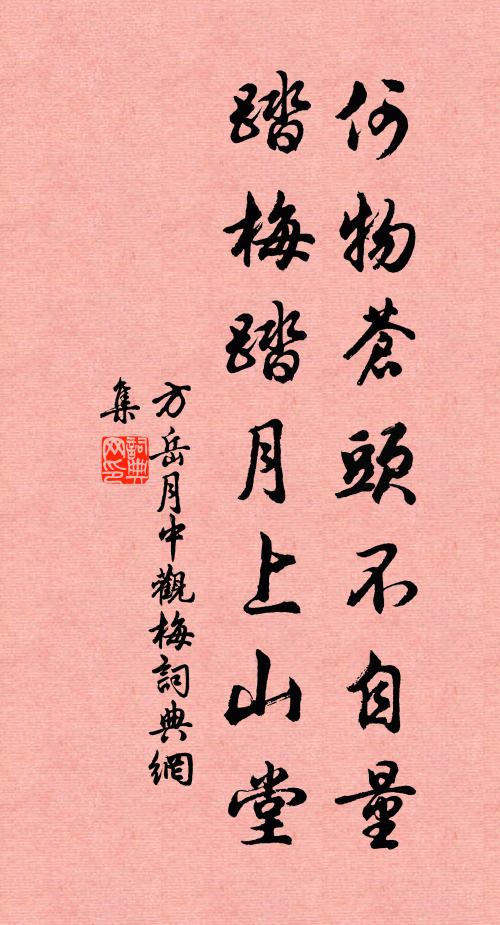 何物蒼頭不自量
踏梅踏月上山堂
方岳月中觀梅詞典網
集
詞典網印